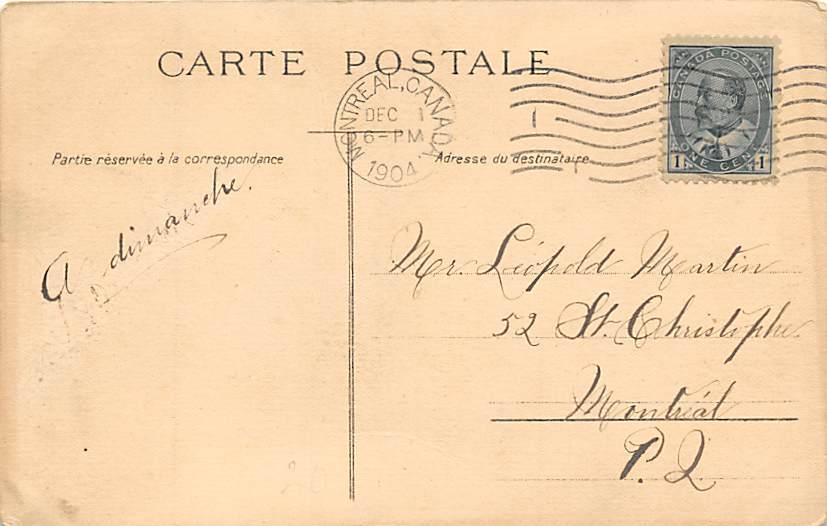 CARTE POSTALE
MONTREAL, CANADA
DEC 1
6-PM
1904
CANADA POSTAGE
1 ONE CENT 1
Partie réservée à la correspondance
Adresse du destinataire
A dimanche.
Mr. Léopold Martin
52 St. Christophe.
Montréal
P.Q.
20